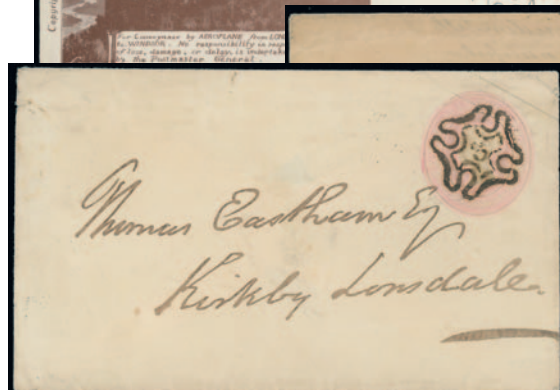 Copyrig
For Conveyance by AEROPLANE from LON
to WINDSOR. No responsibility in resp
of loss, damage, or delay, is undertak
by the Postmaster General.
Thomas Eastham Esq
Kirkby Lonsdale.